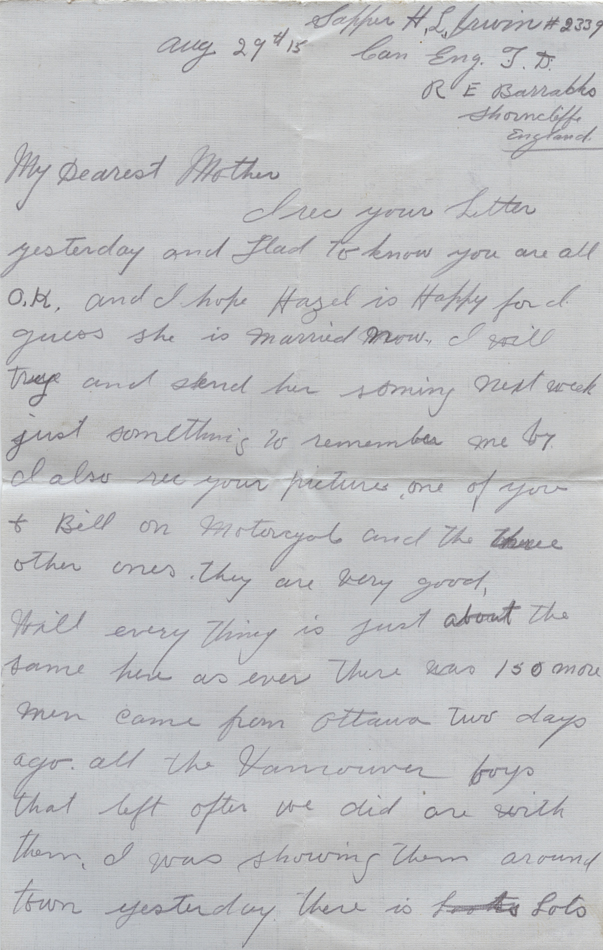 Sapper H. L. Irwin # 2339
Aug 29th 15
Can Eng. T. D.
R E Barracks
Shorncliffe
England.
My Dearest Mother
I rec your Letter
yesterday and Glad to know you are all
O.K. and I hope Hazel is Happy for I
guess she is married now. I will
try and send her soming next week
just something to remember me by.
I also rec your pictures, one of you
& Bill on Motorcycle and the three
other ones. they are very good,
Will every thing is just about the
same here as ever there was 150 more
men came from Ottawa two days
ago. all the Vancouver boys
that left after we did are with
them, I was showing them around
town yesterday there is Lots